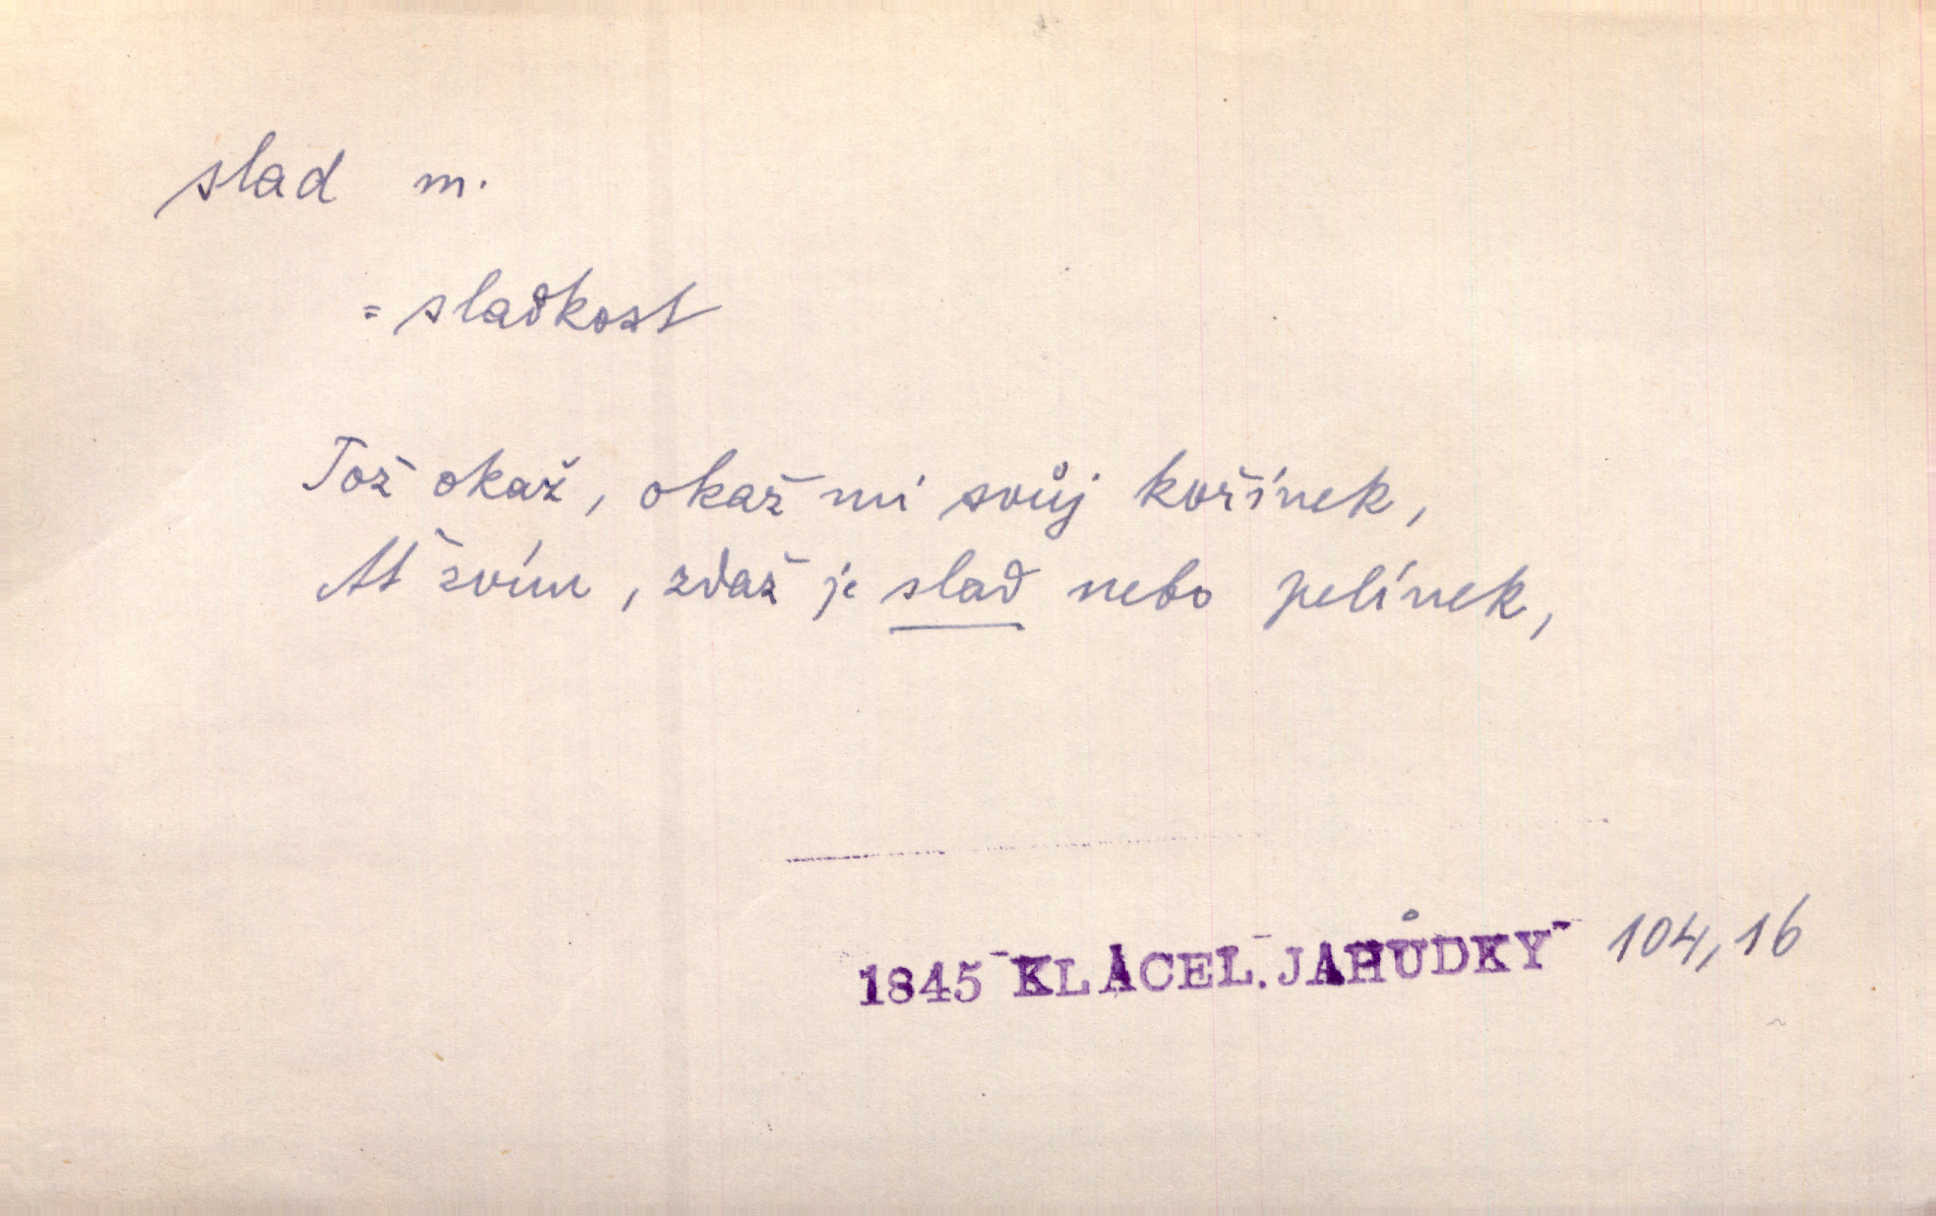 slad m.
= sladkost
Tož okaž, okaž mi svůj kořínek,
Ať zvím, zdaž je slad nebo pelínek,
1845 KLACEL. JAHŮDKY 104,16